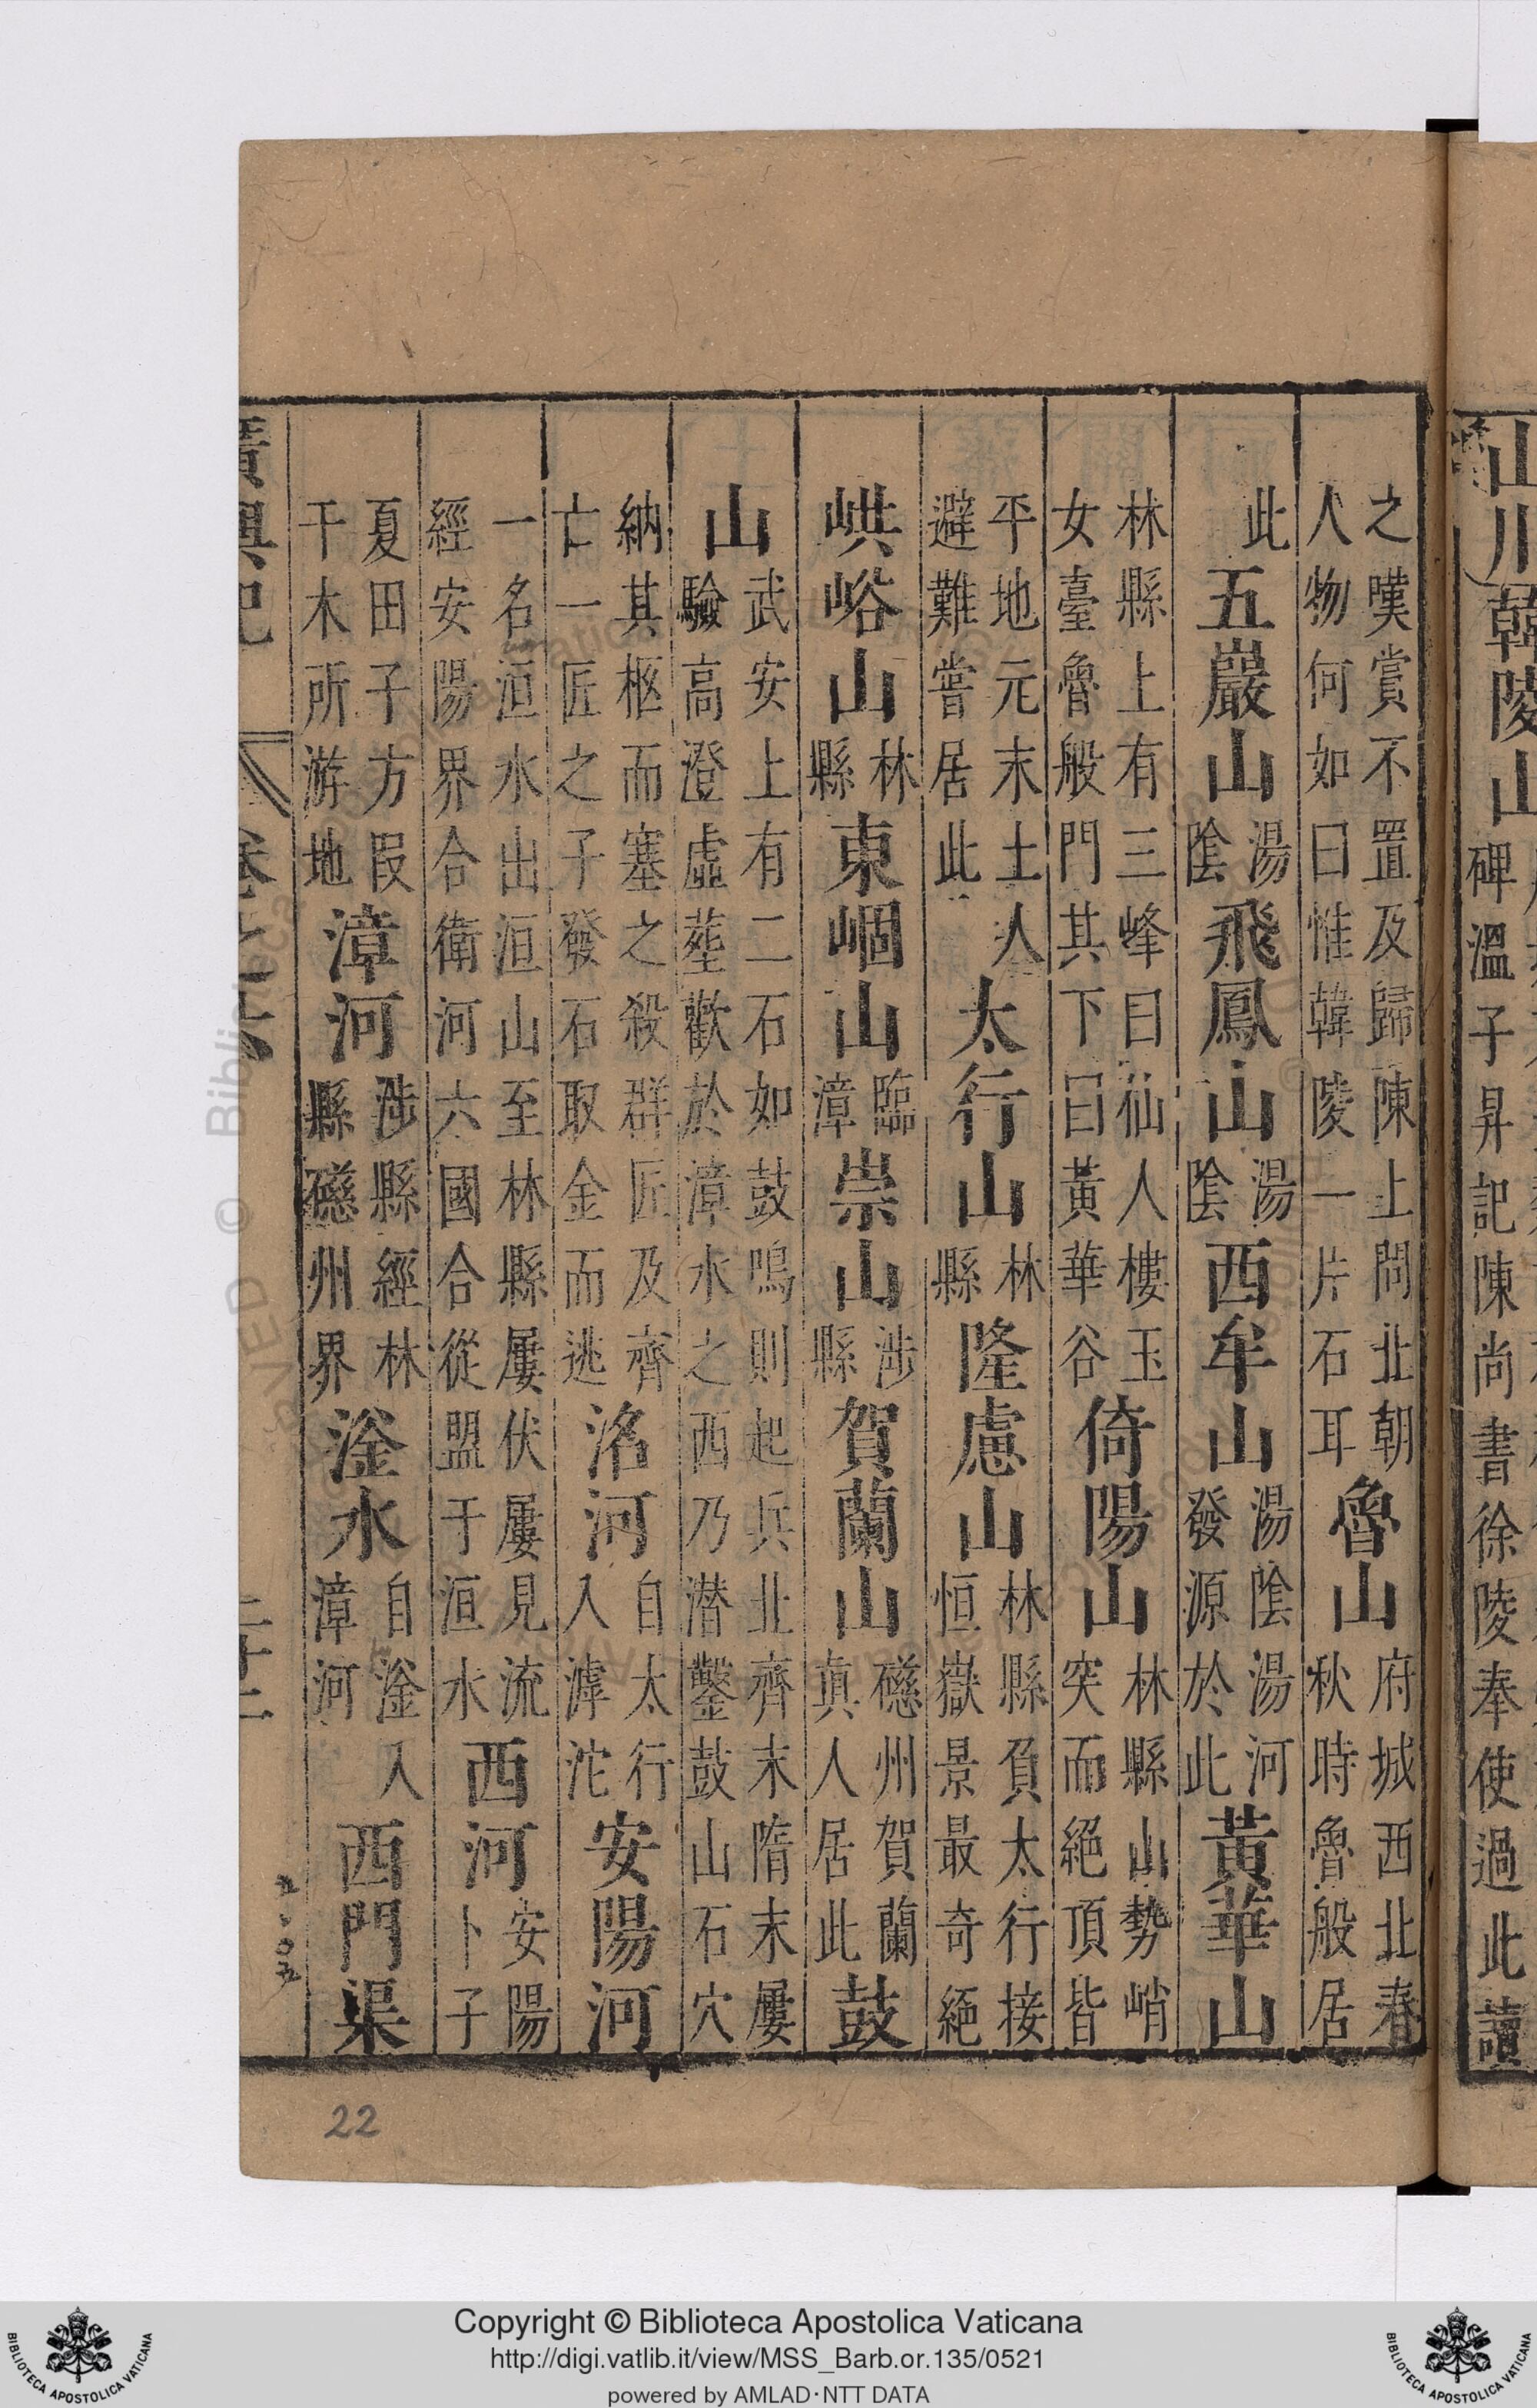 山川
韓陵山
碑溫子昇記陳尚書徐陵奉使過此讀
之嘆賞不置及歸陳上問北朝
人物何如曰惟韓陵一片石耳
魯山
府城西北春
秋時魯般居
此
五巖山
湯
陰
飛鳳山
湯
陰
西牟山
湯陰湯河
發源於此
黃華山
林縣上有三峰曰仙人樓玉
女臺魯般門其下曰黃華谷
倚陽山
林縣山勢峭
突而絕頂皆
平地元末土人
避難嘗居此
太行山
林
縣
隆慮山
林縣負太行接
恒嶽景最奇絕
峪山
林
縣
東崓山
臨
漳
崇山
涉
縣
賀蘭山
磁州賀蘭
真人居此
鼓
山
武安上有二石如鼓鳴則起兵北齊末隋末屢
驗高澄虛葬歡於漳水之西乃潜鑿鼓山石穴
納其柩而塞之殺群匠及齊
亡一匠之子發石取金而逃
洺河
自太行
入滹沱
安陽河
一名洹水出洹山至林縣屢伏屢見流
經安陽界合衛河六國合從盟于洹水
西河
安陽
卜子
夏田子方段
干木所游地
漳河
涉縣經林
縣磁州界
滏水
自滏入
漳河
西門渠
廣輿記
卷之六
二十二
22
Copyright © Biblioteca Apostolica Vaticana
http://digi.vatlib.it/view/MSS_Barb.or.135/0521
powered by AMLAD·NTT DATA
BIBLIOTECA APOSTOLICA VATICANA
BIBLIOTECA APOSTOLICA VATICANA